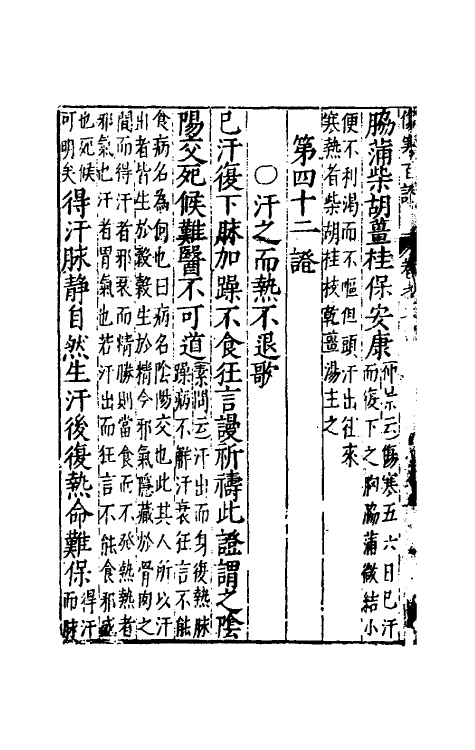 脇滿柴胡薑桂保安康
仲景云傷寒五六日已汗
而復下之胸脇滿微結小
便不利渴而不嘔但頭汗出往來
寒熱者柴胡桂枝乾薑湯主之
第四十二證
○汗之而熱不退歌
已汗復下脉加躁不食狂言謾祈禱此證謂之陰
陽交死候難醫不可道
素問云汗出而身復熱脉
躁病不解汗衰狂言不能
食病名為何也曰病名陰陽交也此其人所以汗
出者皆生於穀穀生於精今邪氣隱藏於骨肉之
間而得汗者邪衰而精勝則當食而不發熱熱者
邪氣也汗者胃氣也若汗出而狂言不能食邪盛
也死候
可明矣
得汗脉静自然生汗後復熱命難保
得汗
而脉